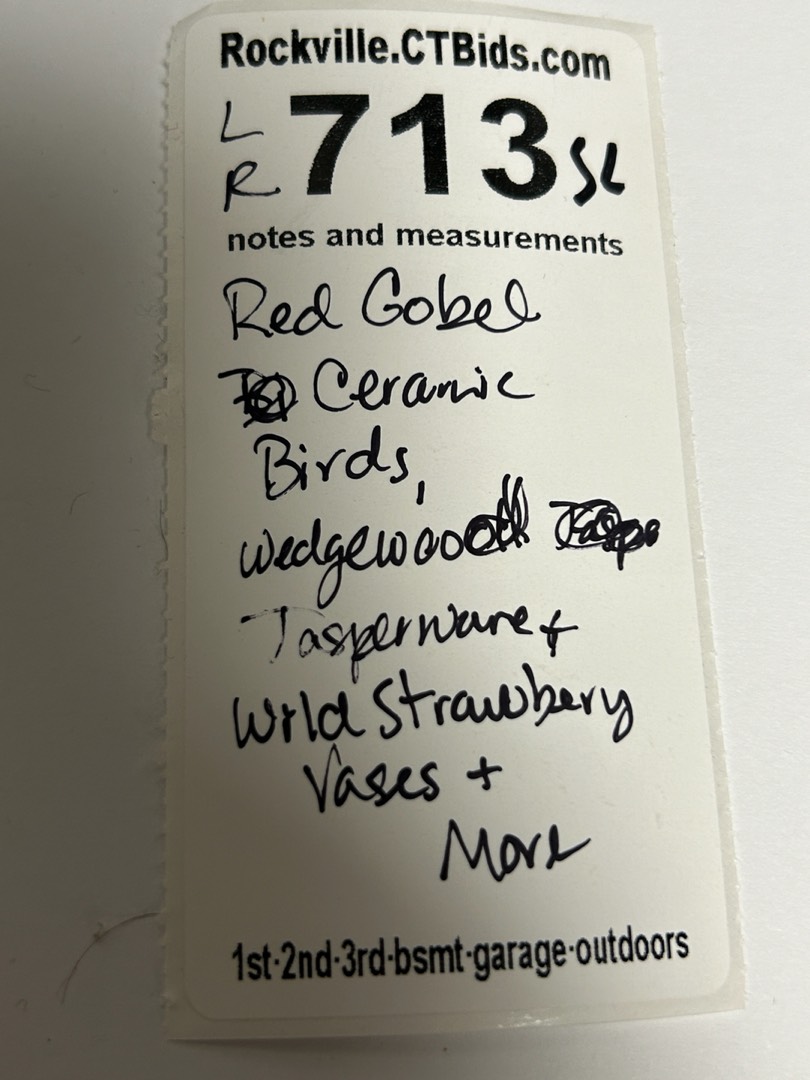 Rockville.CTBids.com
L
R 713 SL
notes and measurements
Red Gobel
Ceramic
Birds,
Wedgewoood
Jasperware +
Wild Strawbery
Vases +
More
1st·2nd·3rd·bsmt·garage·outdoors